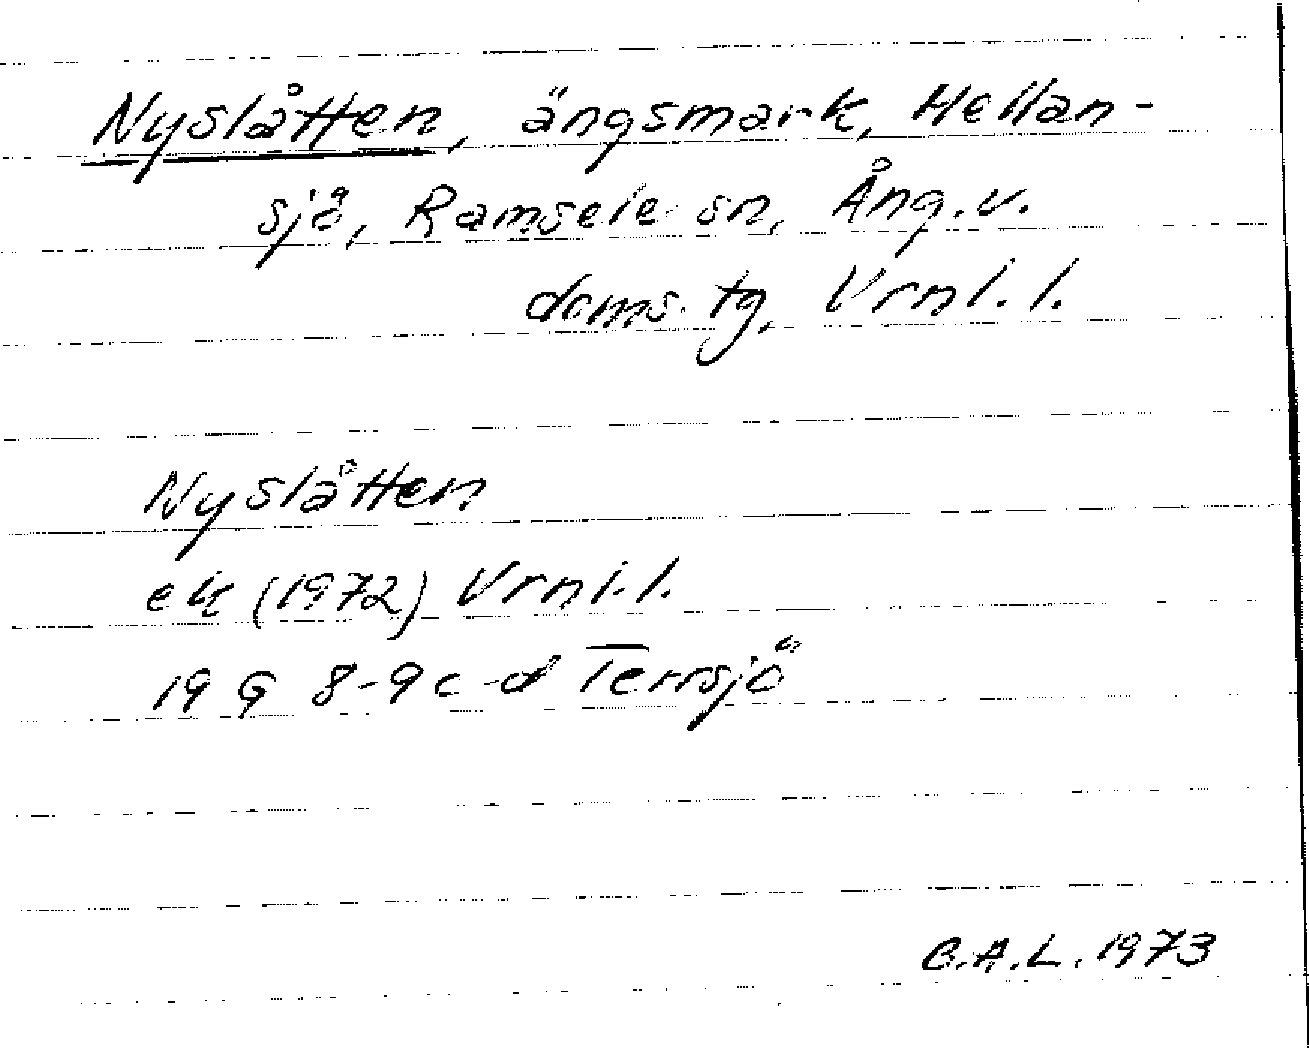 Nyslåtten, ängsmark, Hellan-
sjö, Ramsele sn, Ång.v.
doms. tg, Vrnl. l.
Nyslåtten
ek (1972) Vrnl. l.
19 G 8-9 c-d Terrsjö
C.A.L. 1973